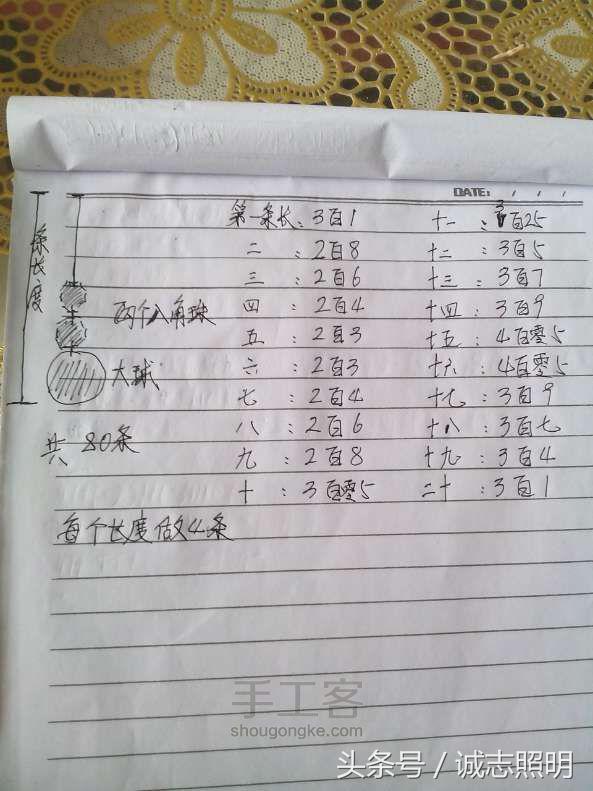 DATE:
第一条长：3百1 十一：3百25
二：2百8 十二：3百5
三：2百6 十三：3百7
四：2百4 十四：3百9
五：2百3 十五：4百零5
六：2百3 十六：4百零5
七：2百4 十七：3百9
八：2百6 十八：3百七
九：2百8 十九：3百4
十：3百零5 二十：3百1
条长度
两个八角珠
大球
共80条
每个长度做4条
手工客
shougongke.com
头条号／诚志照明